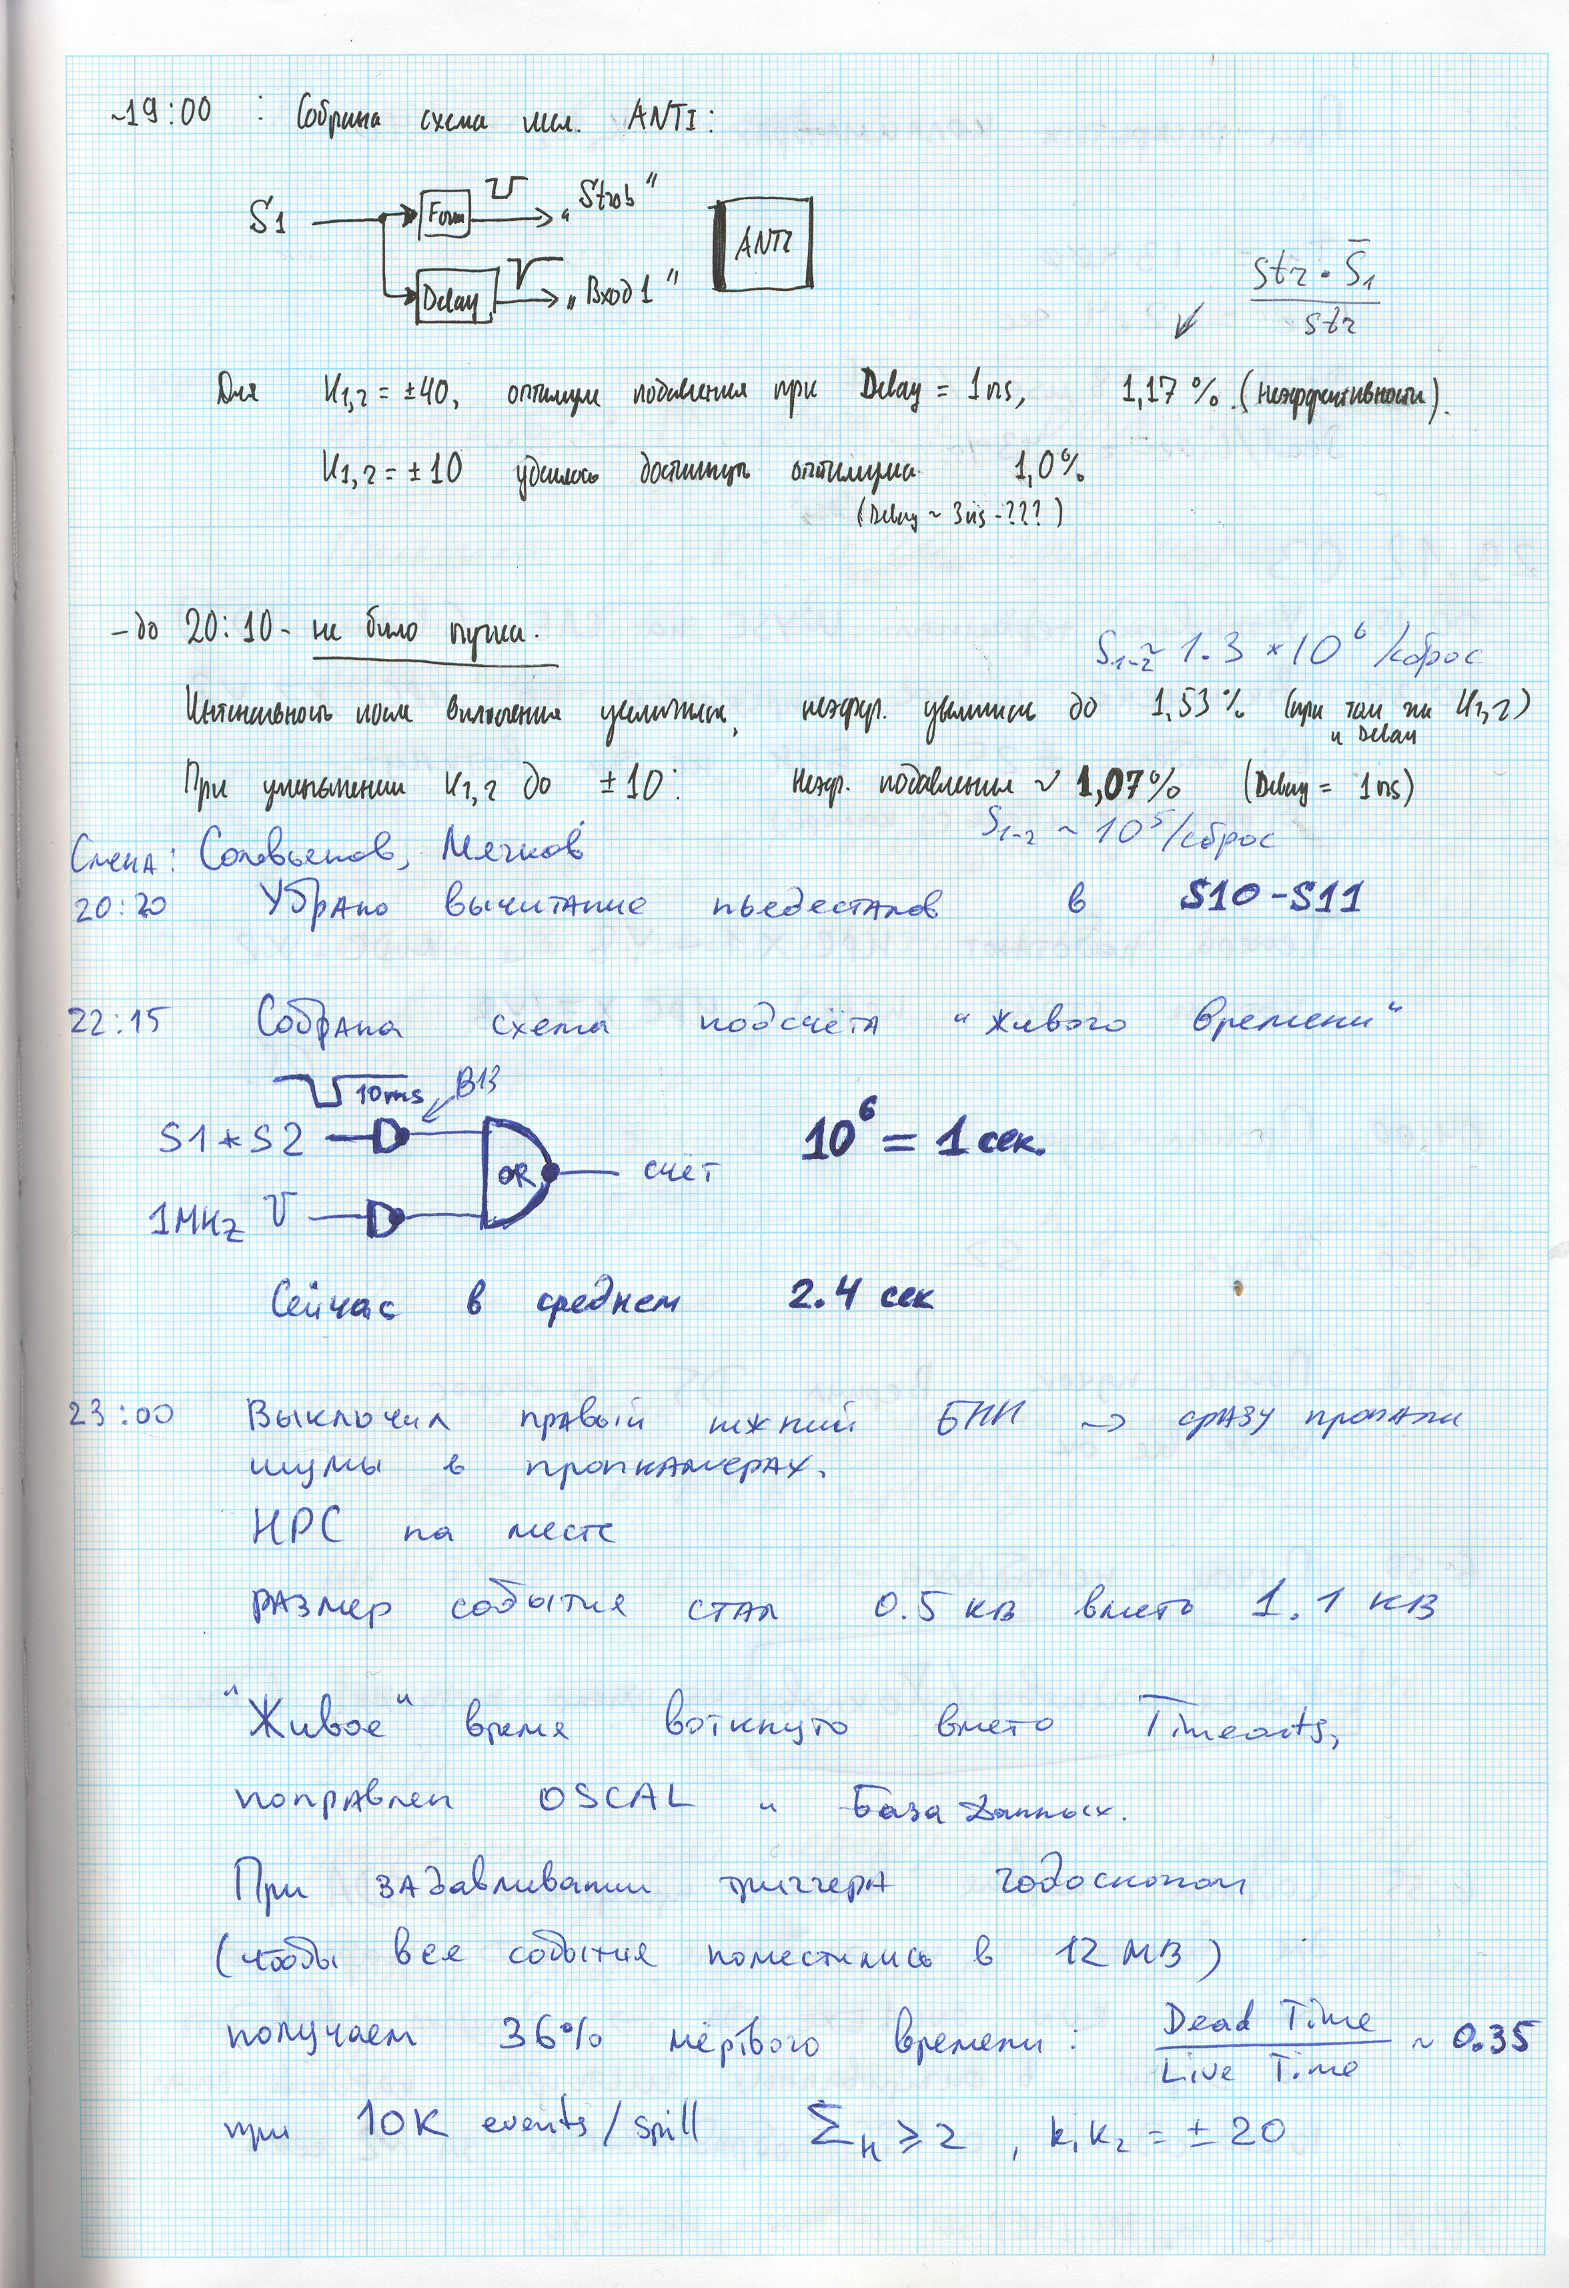 ~19:00 : Собрана схема исп. ANTI:
S1 Form "Strob"
Delay "Вход 1" ANTI
Str · S̄1 / Str
Для K1,2 = ±40, оптимум подавления при Delay = 1ns, 1,17% (неэффективности).
K1,2 = ±10 удалось достигнуть оптимума 1,0%
(Delay ~ 3ns - ???)
- до 20:10 - не было пучка.
S1-2 ~ 1.3 * 10^6 /сброс
Интенсивность после включения увеличилась, неэфф. увелились до 1,53% (при том же K1,2)
и Delay
При уменьшении K1,2 до ±10: неэф. подавления ~ 1,07% (Delay = 1ns)
S1-2 ~ 10^5/сброс
Смена: Соловьянов, Мячков
20:20 Убрано вычитание пьедесталов в S10-S11
22:15 Собрана схема подсчёта "живого времени"
10ms B13
S1*S2 OR счёт 10^6 = 1 сек.
1MHz
Сейчас в среднем 2.4 сек
23:00 Выключил правый нижний БНН → сразу пропали
шумы в пропкамерах.
НРС на месте
Размер события стал 0.5 кв вместо 1.1 кв
"Живое" время воткнуто вместо Timeouts,
поправлен OSCAL и База данных.
При задавливании триггера годоскопом
(чтобы все события поместились в 12 МВ)
получаем 36% мёртвого времени: Dead Time / Live Time ~ 0.35
при 10K events/spill Σн ⩾ 2, k1k2 = ±20